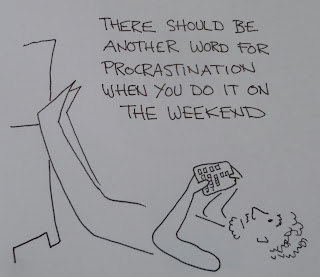 THERE SHOULD BE
ANOTHER WORD FOR
PROCRASTINATION
WHEN YOU DO IT ON
THE WEEKEND